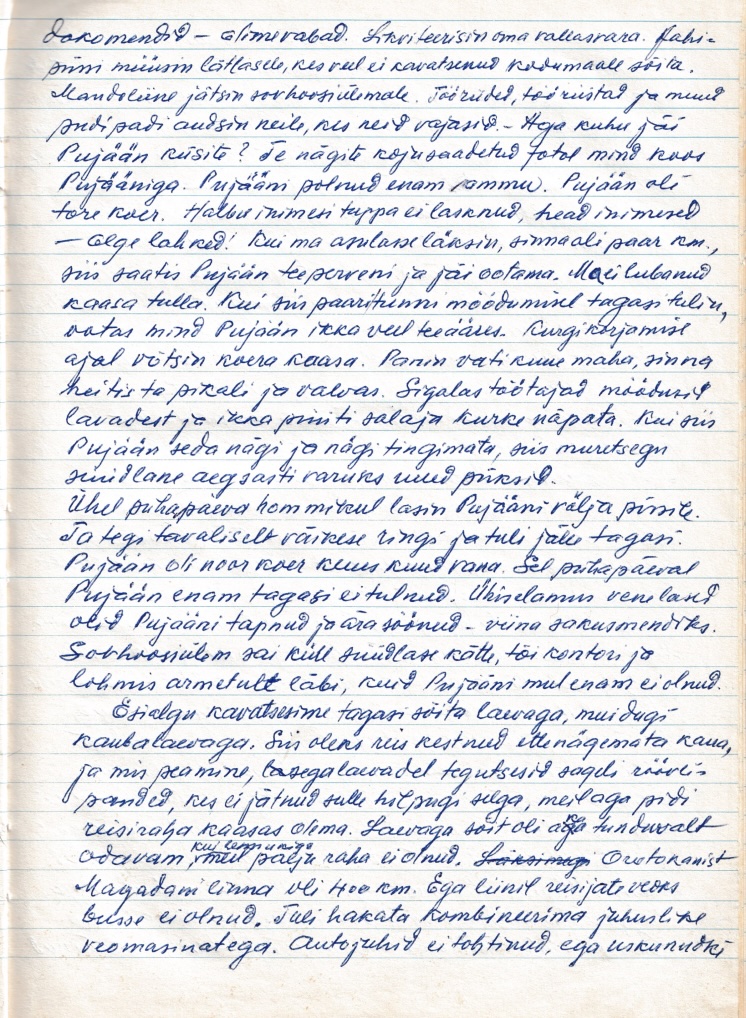 dokomendid – olime vabad. Likviteerisin oma vallasvara. Jahi-
püssi müüsin lätlasele, kes veel ei kavatsenud kodumaale sõita.
Mandoliine jätsin sovhoosiülemale. Tööriided, tööriistad ja muud
pudipadi andsin neile, kes neid vajasid. – Aga kuhu jäi
Pujään küsite? Te nägite kojusaadetud fotol mind koos
Pujääniga. Pujääni polnud enam ammu. Pujään oli
tore koer. Halbu inimesi tuppa ei lasknud, head inimesed
– olge lahked! Kui ma asulasse läksin, sinna oli paar km.,
siis saatis Pujään teeperveni ja jäi ootama. Ma ei lubanud
kaasa tulla. Kui siis paaritunni möödumisel tagasi tulin,
ootas mind Pujään ikka veel teeääres. Kurgikorjamise
ajal võtsin koera kaasa. Panin vatikuue maha, sinna
heitis ta pikali ja valvas. Sigalas töötajad möödusid
lavadest ja ikka püüti salaja kurke näpata. Kui siis
Pujään seda nägi ja nägi tingimata, siis muretsegu
süüdlane aegsasti varuks uued püksid.
Ühel pühapäeva hommikul lasin Pujääni välja pissile.
Ta tegi tavaliselt väikese ringi ja tuli jälle tagasi.
Pujään oli noor koer kuus kuud vana. Sel pühapäeval
Pujään enam tagasi ei tulnud. Ühiselamus venelased
olid Pujääni tapnud ja ära söönud – viina sakusmendiks.
Sovhoosiülem sai küll süüdlase kätte, tõi kontori ja
lohmis armetult läbi, kuid Pujääni mul enam ei olnud.
Esialgu kavatsesime tagasi sõita laevaga, muidugi
kaubalaevaga. Siis oleks reis kestnud ettenägemata kaua,
ja mis peamine, lasegalaevadel tegutsesid sageli röövli-
panded, kes ei jätnud sulle hilpugi selga, meil aga pidi
reisiraha kaasas olema. Laevaga sõit oli aga ka tunduvalt
odavam, kui lennukiga meil palju raha ei olnud. Läksimegi Orotokanist
Magadani linna oli 400 km. Ega liinil reisijateveoks
busse ei olnud. Tuli hakata kombineerima juhuslike
veomasinatega. Autojuhid ei tohtinud, ega uskunudki